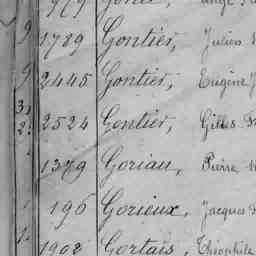 9 1789 Gontier, Julien
9 2445 Gontier, Eugène
3, 2524 Gontier, Gilles
1379 Goriau, Pierre
196 Gorieux, Jacques
1902 Gortais, Théophile